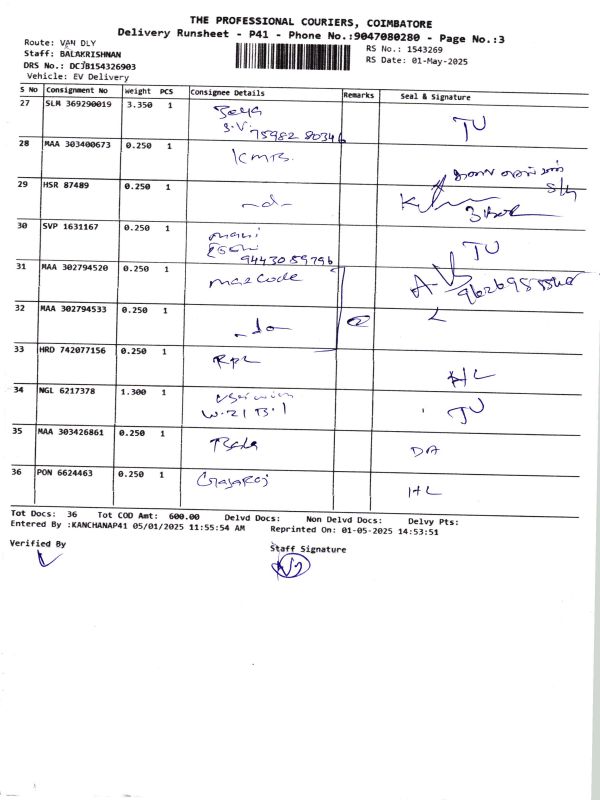 THE PROFESSIONAL COURIERS, COIMBATORE
Delivery Runsheet - P41 - Phone No.:9047080280 - Page No.:3
Route: VAN DLY
Staff: BALAKRISHNAN
DRS No.: DCJB154326903
Vehicle: EV Delivery
RS No.: 1543269
RS Date: 01-May-2025
S No Consignment No Weight PCS Consignee Details Remarks Seal & Signature
27 SLM 369290019 3.350 1
S.V. 75982 80346 TU
28 MAA 303400673 0.250 1 KMB.
29 HSR 87489 0.250 1 -d-
30 SVP 1631167 0.250 1 mani
9443089796 TU
31 MAA 302794520 0.250 1 maxcode
32 MAA 302794533 0.250 1 -do- 2
33 HRD 742077156 0.250 1 RPL H/L
34 NGL 6217378 1.300 1
W.21 B.1 TU
35 MAA 303426861 0.250 1 Bala DA
36 PON 6624463 0.250 1 Gajaraj HL
Tot Docs: 36 Tot COD Amt: 600.00 Delvd Docs: Non Delvd Docs: Delvy Pts:
Entered By :KANCHANAP41 05/01/2025 11:55:54 AM Reprinted On: 01-05-2025 14:53:51
Verified By
Staff Signature